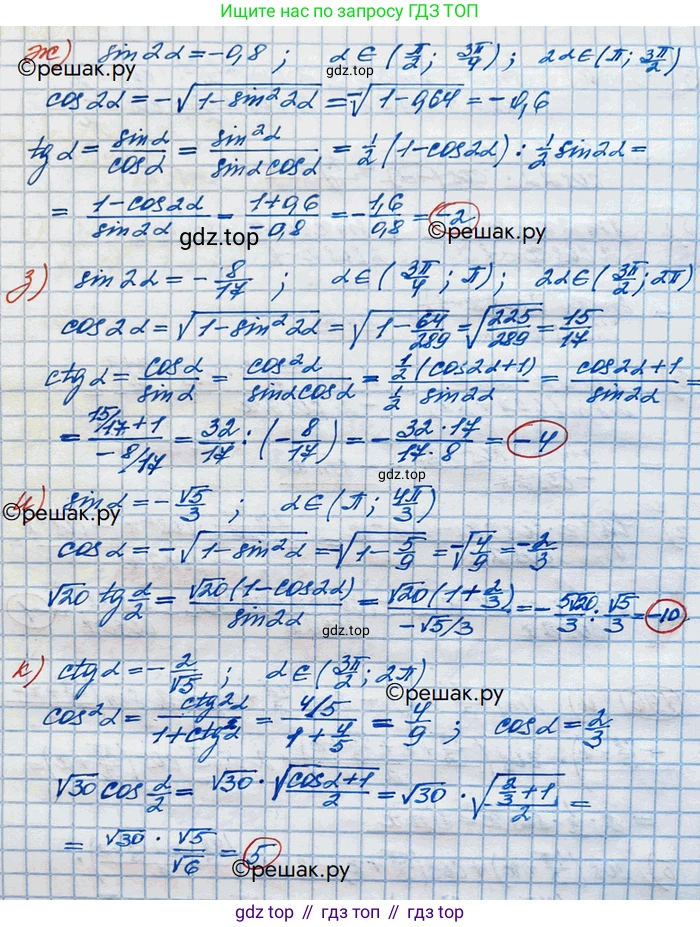 Ищите нас в поиске по запросу ГДЗ ТОП
ж) sin2α = -0,8 ; α ∈ (π/2 ; 3π/4) ; 2α ∈ (π ; 3π/2)
©решак.ру
cos2α = -√(1-sin²2α) = -√(1-0,64) = -0,6
tgα = sinα/cosα = sin²α/(sinα cosα) = 1/2 (1-cos2α) : 1/2 sin2α =
= (1-cos2α)/sin2α = (1+0,6)/(-0,8) = -1,6/0,8 = -2
gdz.top
©решак.ру
з) sin2α = -8/17 ; α ∈ (3π/4 ; π) ; 2α ∈ (3π/2 ; 2π)
cos2α = √(1-sin²2α) = √(1-64/289) = √(225/289) = 15/17
ctgα = cosα/sinα = cos²α/(sinα cosα) = (1/2 (cos2α+1))/(1/2 sin2α) = (cos2α+1)/sin2α =
= (15/17+1)/(-8/17) = 32/17 : (-8/17) = -(32·17)/(17·8) = -4
gdz.top
и) sinα = -√5/3 ; α ∈ (π ; 4π/3)
©решак.ру
cosα = -√(1-sin²α) = -√(1-5/9) = -√(4/9) = -2/3
√20 tg α/2 = √20(1-cos2α)/sin2α = √20(1+2/3)/(-√5/3) = -5√20/3 : √5/3 = -10
gdz.top
к) ctgα = -2/√5 ; α ∈ (3π/2 ; 2π)
©решак.ру
cos²α = ctg²α/(1+ctg²α) = (4/5)/(1+4/5) = 4/9 ; cosα = 2/3
gdz.top
√30 cos α/2 = √30 · √((cosα+1)/2) = √30 · √((2/3+1)/2) =
= √30 · √5/√6 = 5
©решак.ру
gdz.top // гдз.топ // gdz.top // гдз.топ